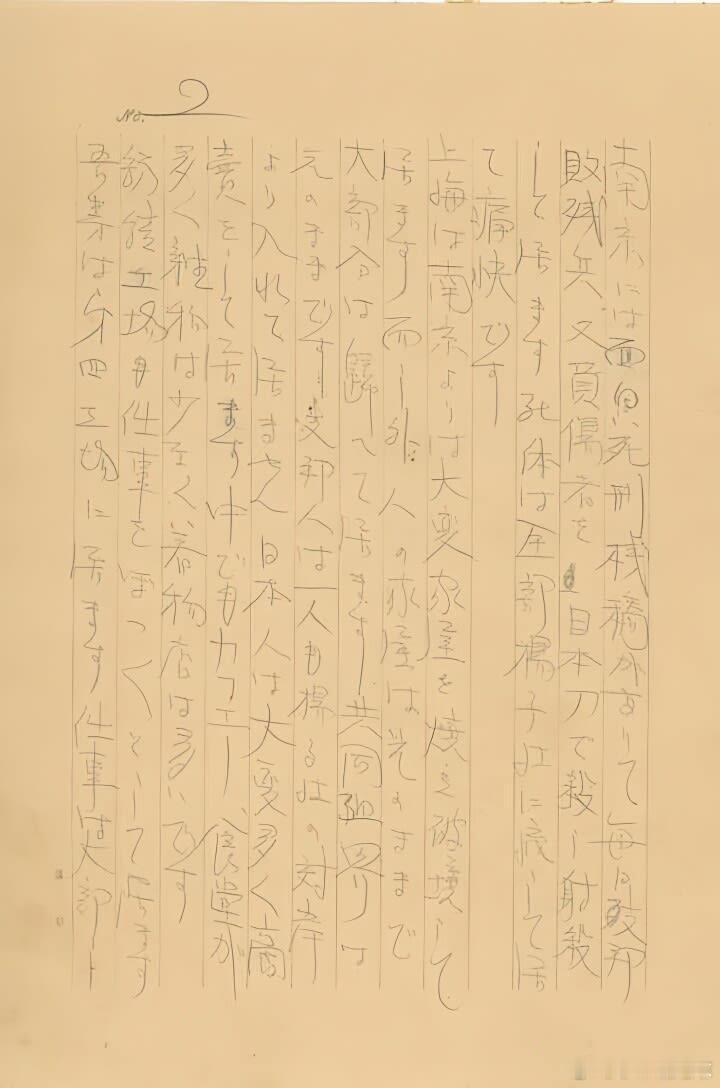 No. 2
南京には面白い死刑桟橋がありて毎日支那
敗残兵又負傷者を日本刀で殺し射殺
して居ます死体は全部揚子江に流して居
て痛快です
上海は南京よりは大変家屋を焼き破壊して
居ます而し外人の家屋は元のままで
大部分は帰へて居ます共同租界は
元のままです支那人は一人も揚子江の対岸
より入れて居ません日本人は大変多く商
売をして居ます中でもカフェー、食堂が
多く雑物は少なく着物店は多いです
紡績工場も仕事をぼつ〱として居ます
吾等は第四工場に居ます仕事は大部し